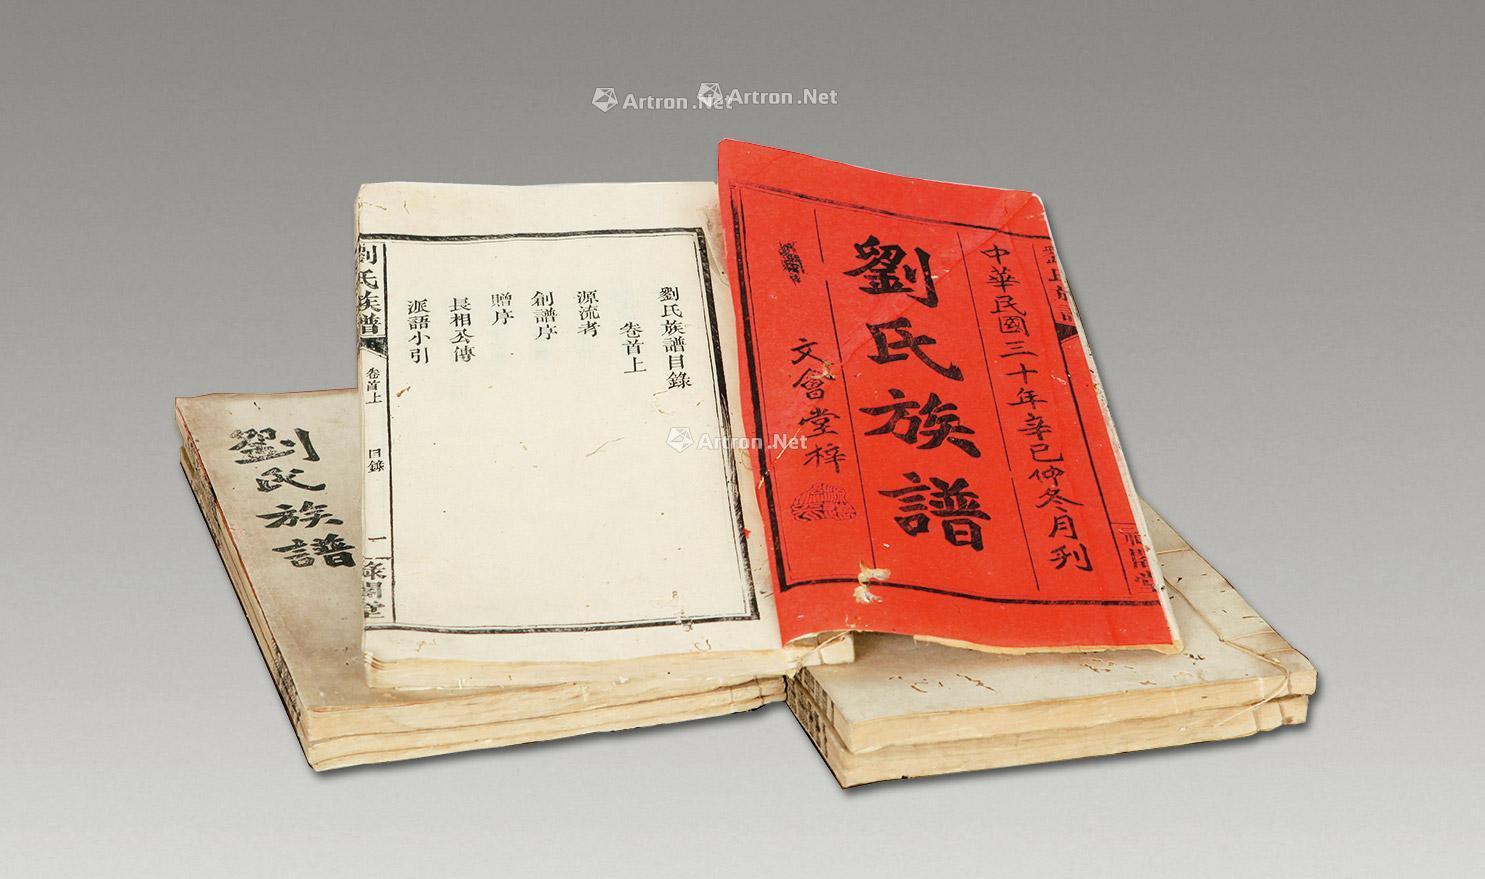 Artron.Net
Artron.Net
中華民國三十年辛巳仲冬月刋
劉氏族譜
文會堂梓
劉氏族譜目錄
卷首上
源流考
創譜序
贈序
長相公傳
派語小引
劉氏族譜
卷首上
目錄
一
劉氏族譜
Artron.Net